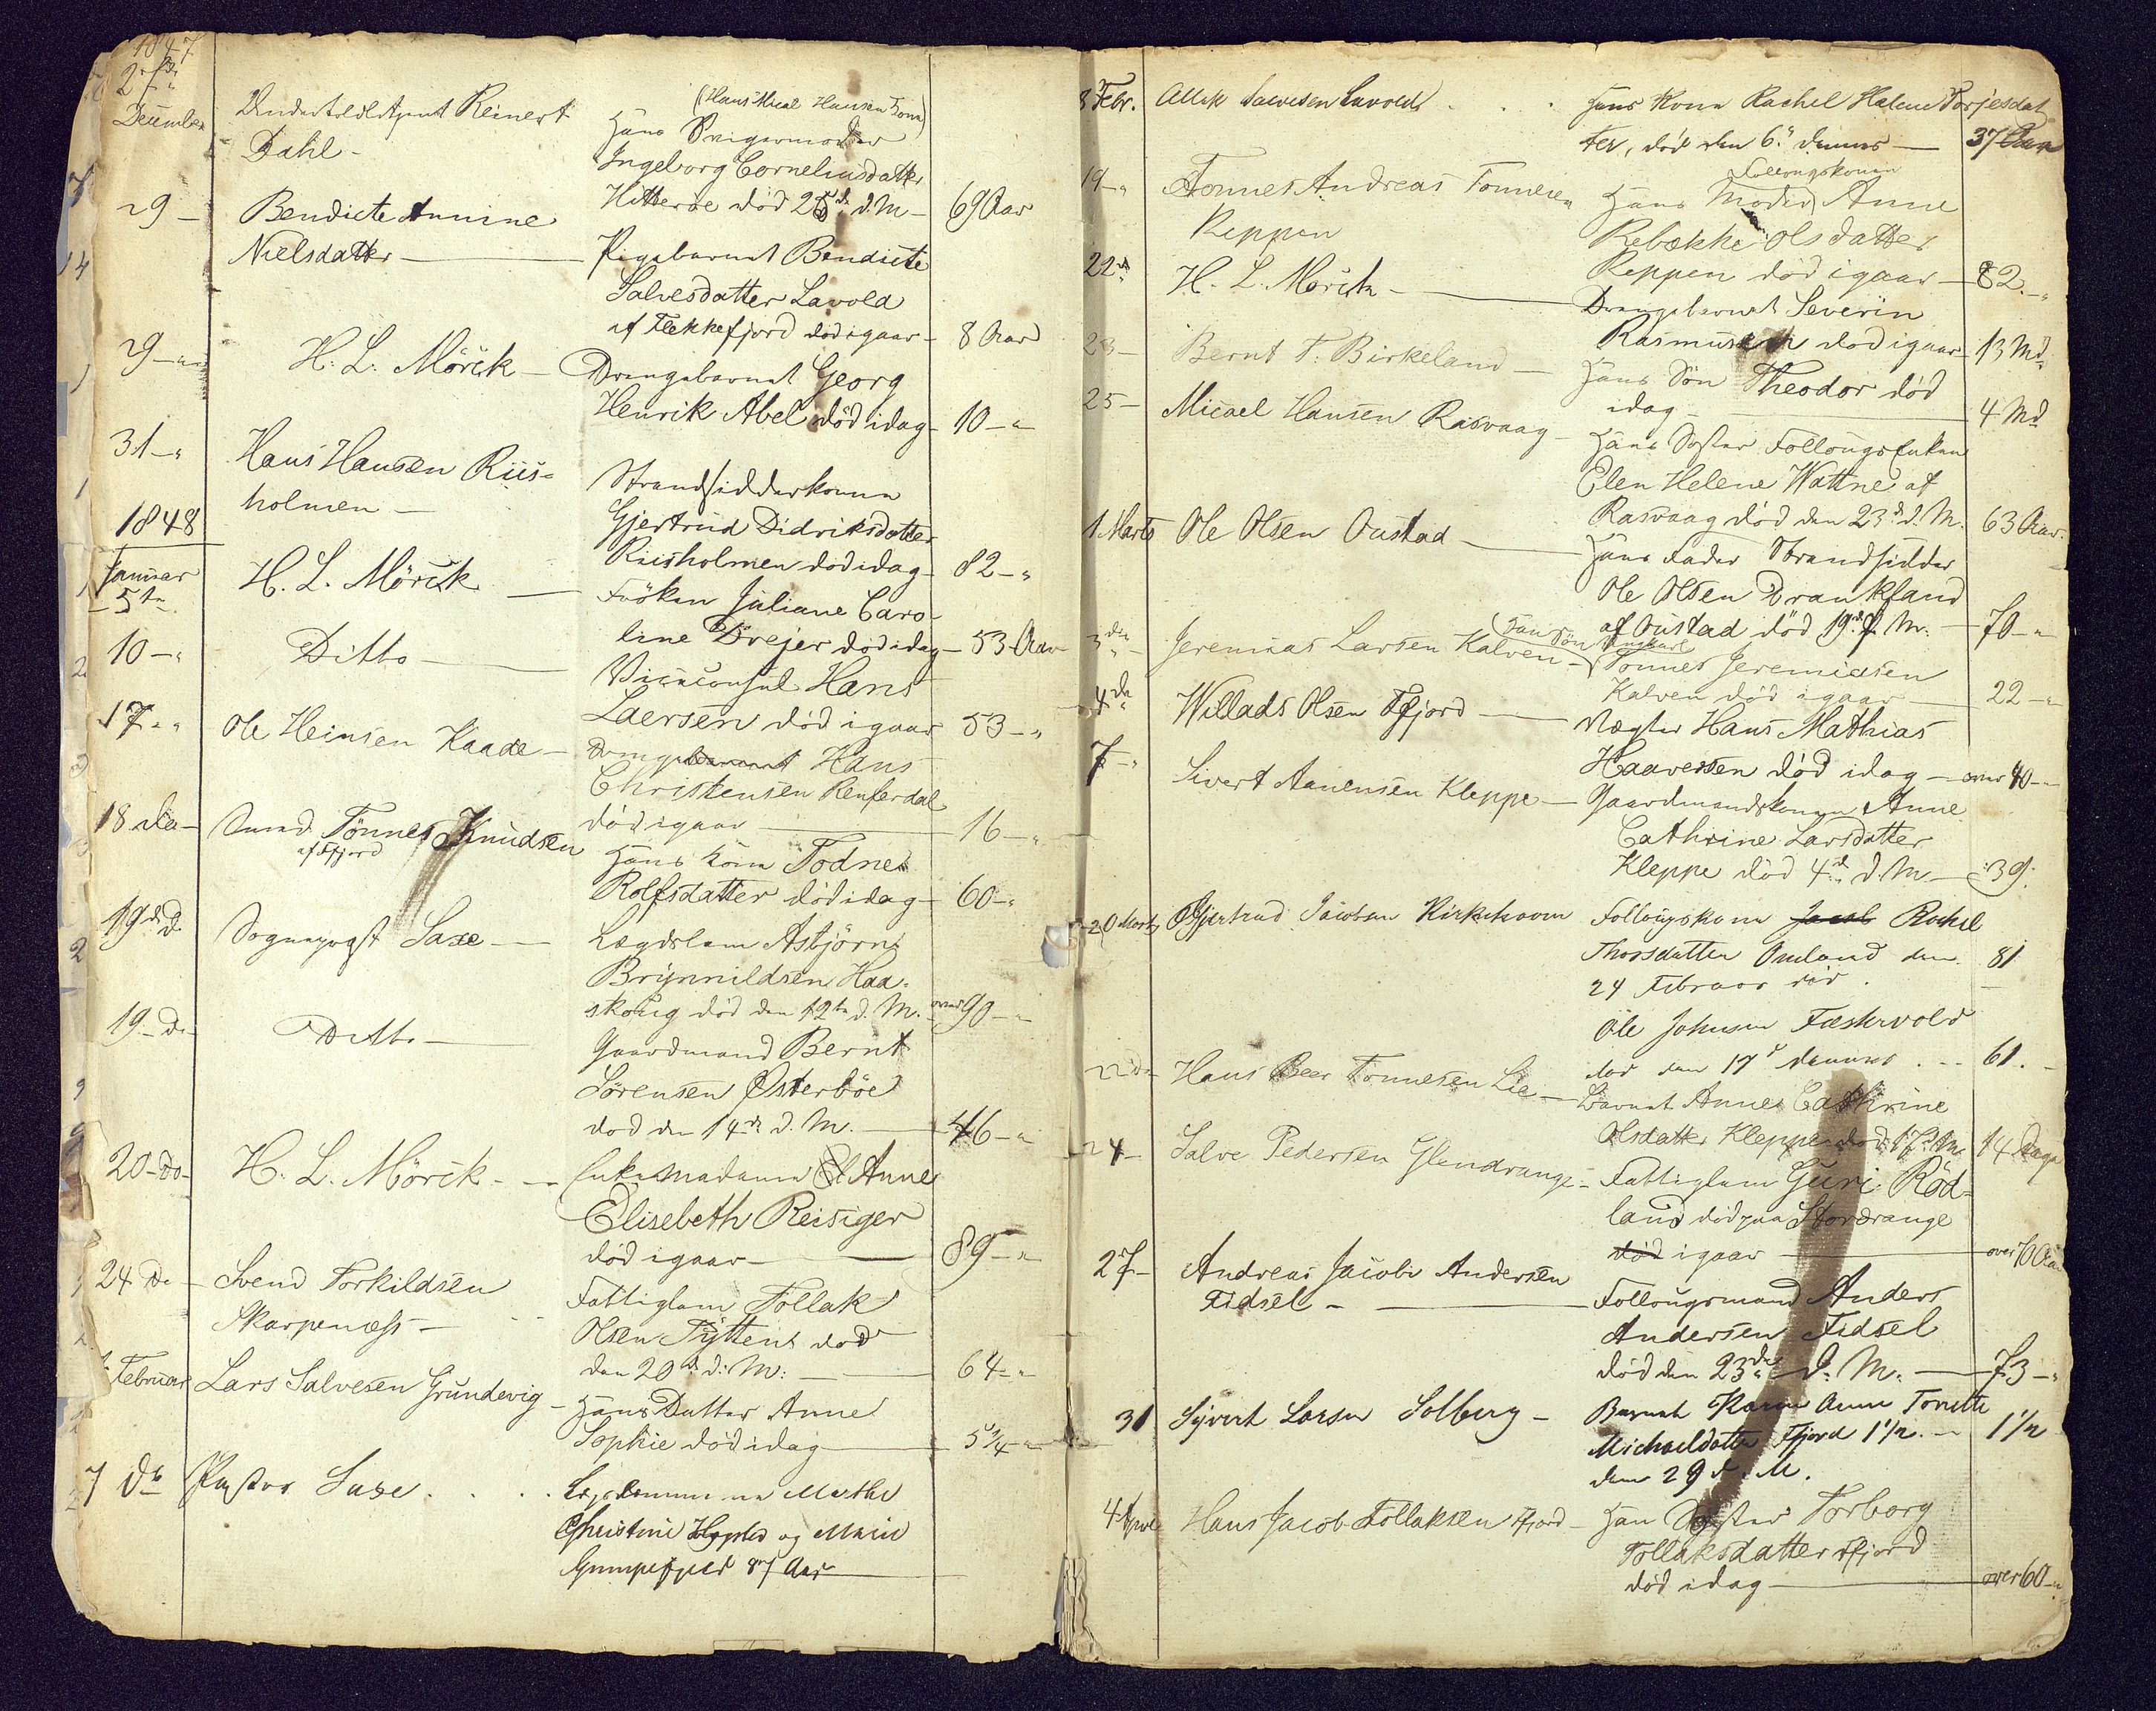 1847
27de
December
Undertoldbetjent Reinert
Dahl -
(Hans Mical Hansen Tonn)
Hans Svigermoder
Ingeborg Corneliusdatter
Hitterøe død 25de d. M - 69 Aar
29 - Bendicte Annine
Nielsdatter - Pigebarnet Bendicte
Salvesdatter Lavold
af Flekkefjord død igaar - 8 Aar
29 - " H. L. Mörck - Drengebarnet Georg
Henrik Abel död idag - 10 - "
31 - " Hans Hansen Riis-
holmen - Strandsidderkonen
Gjertrud Didriksdatter
Riisholmen død idag - 82 - "
1848
Januar
5te H. L. Mörck - Fröken Juliane Caro-
line Drejer död idag - 53 Aar
10 - " Ditto - Viceconsul Hans
Laersen död igaar 53 - "
17 - " Ole Heinsen Kaade - Dreng Hans
Christensen Renferdal
död igaar - 16 - "
18 de - Tönnes Knudsen
af Fjord
Hans Kone Todne
Rolfsdatter död idag - 60 - "
19 de D. Sognepræst Saxe - Lægdslem Asbjörn
Brynnildsen Haa-
skoug död den 12te d. M. - over 90 - "
19 - Do - Ditto - Gaardmand Bernt
Sörensen Østerböe
död den 14de d. M. - 46 - "
20 - Do - H. L. Mörck - Enkemadame Anne
Elisebeth Reisiger
död igaar - 89 - "
24 Do - Svend Torkildsen
Skarpenæss - Fattiglem Tollak
Olsen Tyttent död
den 20de d: M: - 64 - "
Februar Lars Salvesen Grundevig - Hans Datter Anne
Sophie död idag - 5 1/4 - "
7 de Pastor Saxe . . . Marthe
Christine og Marie
87 Aar
8 Febr. Salvesen Lavold . . . Hans Kone Rachel Helene Torjesdat
ter, död den 6te dennes - 37 Aar
19 - " Tonnes Andreas Tonnesen
Reppen
Follougskonen
Hans Moder Anne
Rebække Olsdatter
Reppen död igaar - 82 - "
22de H. L. Mörck - Drengebarnet Severin
Rasmussen död igaar - 13 Md.
23 - Bernt T. Birkeland - Hans Sön Theodor död
idag - 4 Md
25 - Micael Hansen Rasvaag - Hans Söster Follougsenken
Elen Helene Wattne af
Rasvaag död den 23de d. M. 63 Aar.
1 Marts Ole Olsen Oustad - Hans Fader Strandsidder
Ole Olsen
af Oustad död 19de f. M. - 70 - "
3die - Jeremias Larsen Kalven - Hans Sön
Tonnes Jeremiasen
Kalven död igaar - 22 - "
4de Willads Olsen Fjord - Hans Mathias
Haavesen död idag - over 40 - "
7 - " Sivert Aanensen Kleppe - Gaardmandskonen Anne
Cathrine Larsdatter
Kleppe död 4de d. M - 39.
20 Marts Gjertrud Jacobsen Kirkehavn Follougskone Rachel
Thorsdatter Omland den 81
24 Februar död.
Ole Johnsen Fæstervold
död den 17de dennes . . . 61. -
22de - Hans Beer Tönnesen Lie - Barnet Anne Cathrine
Olsdatter Kleppe död 17de d. M. 14 Dage
24 - Salve Pedersen Glendrange - Fattiglem Guri Röd-
land död paa Stordrange
död igaar - over 70 Aar
27 - Andreas Jacob Andersen
Fidsel - Follougsmand Anders
Andersen Fidsel
död den 23de d. M. - 73 - "
31 Sÿvert Larsen Solberg - Barnet Karen Anne Tonette
Michaelsdatter Fjord 1 1/2 . - 1 1/2
den 29 d. M.
4 April Hans Jacob Tollaksen Fjord - Hans Söster Torborg
Tollaksdatter Fjord
död idag - over 60 - "